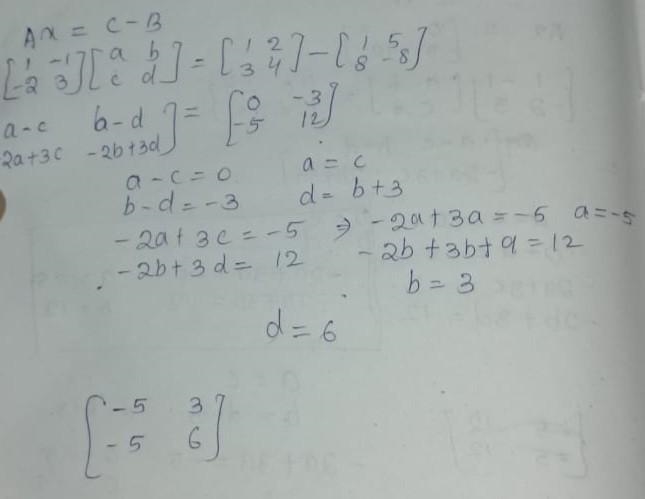 Ax = C-B
[1 -1 -2 3] [a b c d] = [1 2 3 4] - [1 5 8 -8]
a-c b-d -2a+3c -2b+3d] = [0 -3 -5 12]
a-c=0 a=c
b-d=-3 d=b+3
-2a+3c=-5 ⇒ -2a+3a=-5 a=-5
-2b+3d=12 -2b+3b+9=12
b=3
d=6
[-5 3 -5 6]